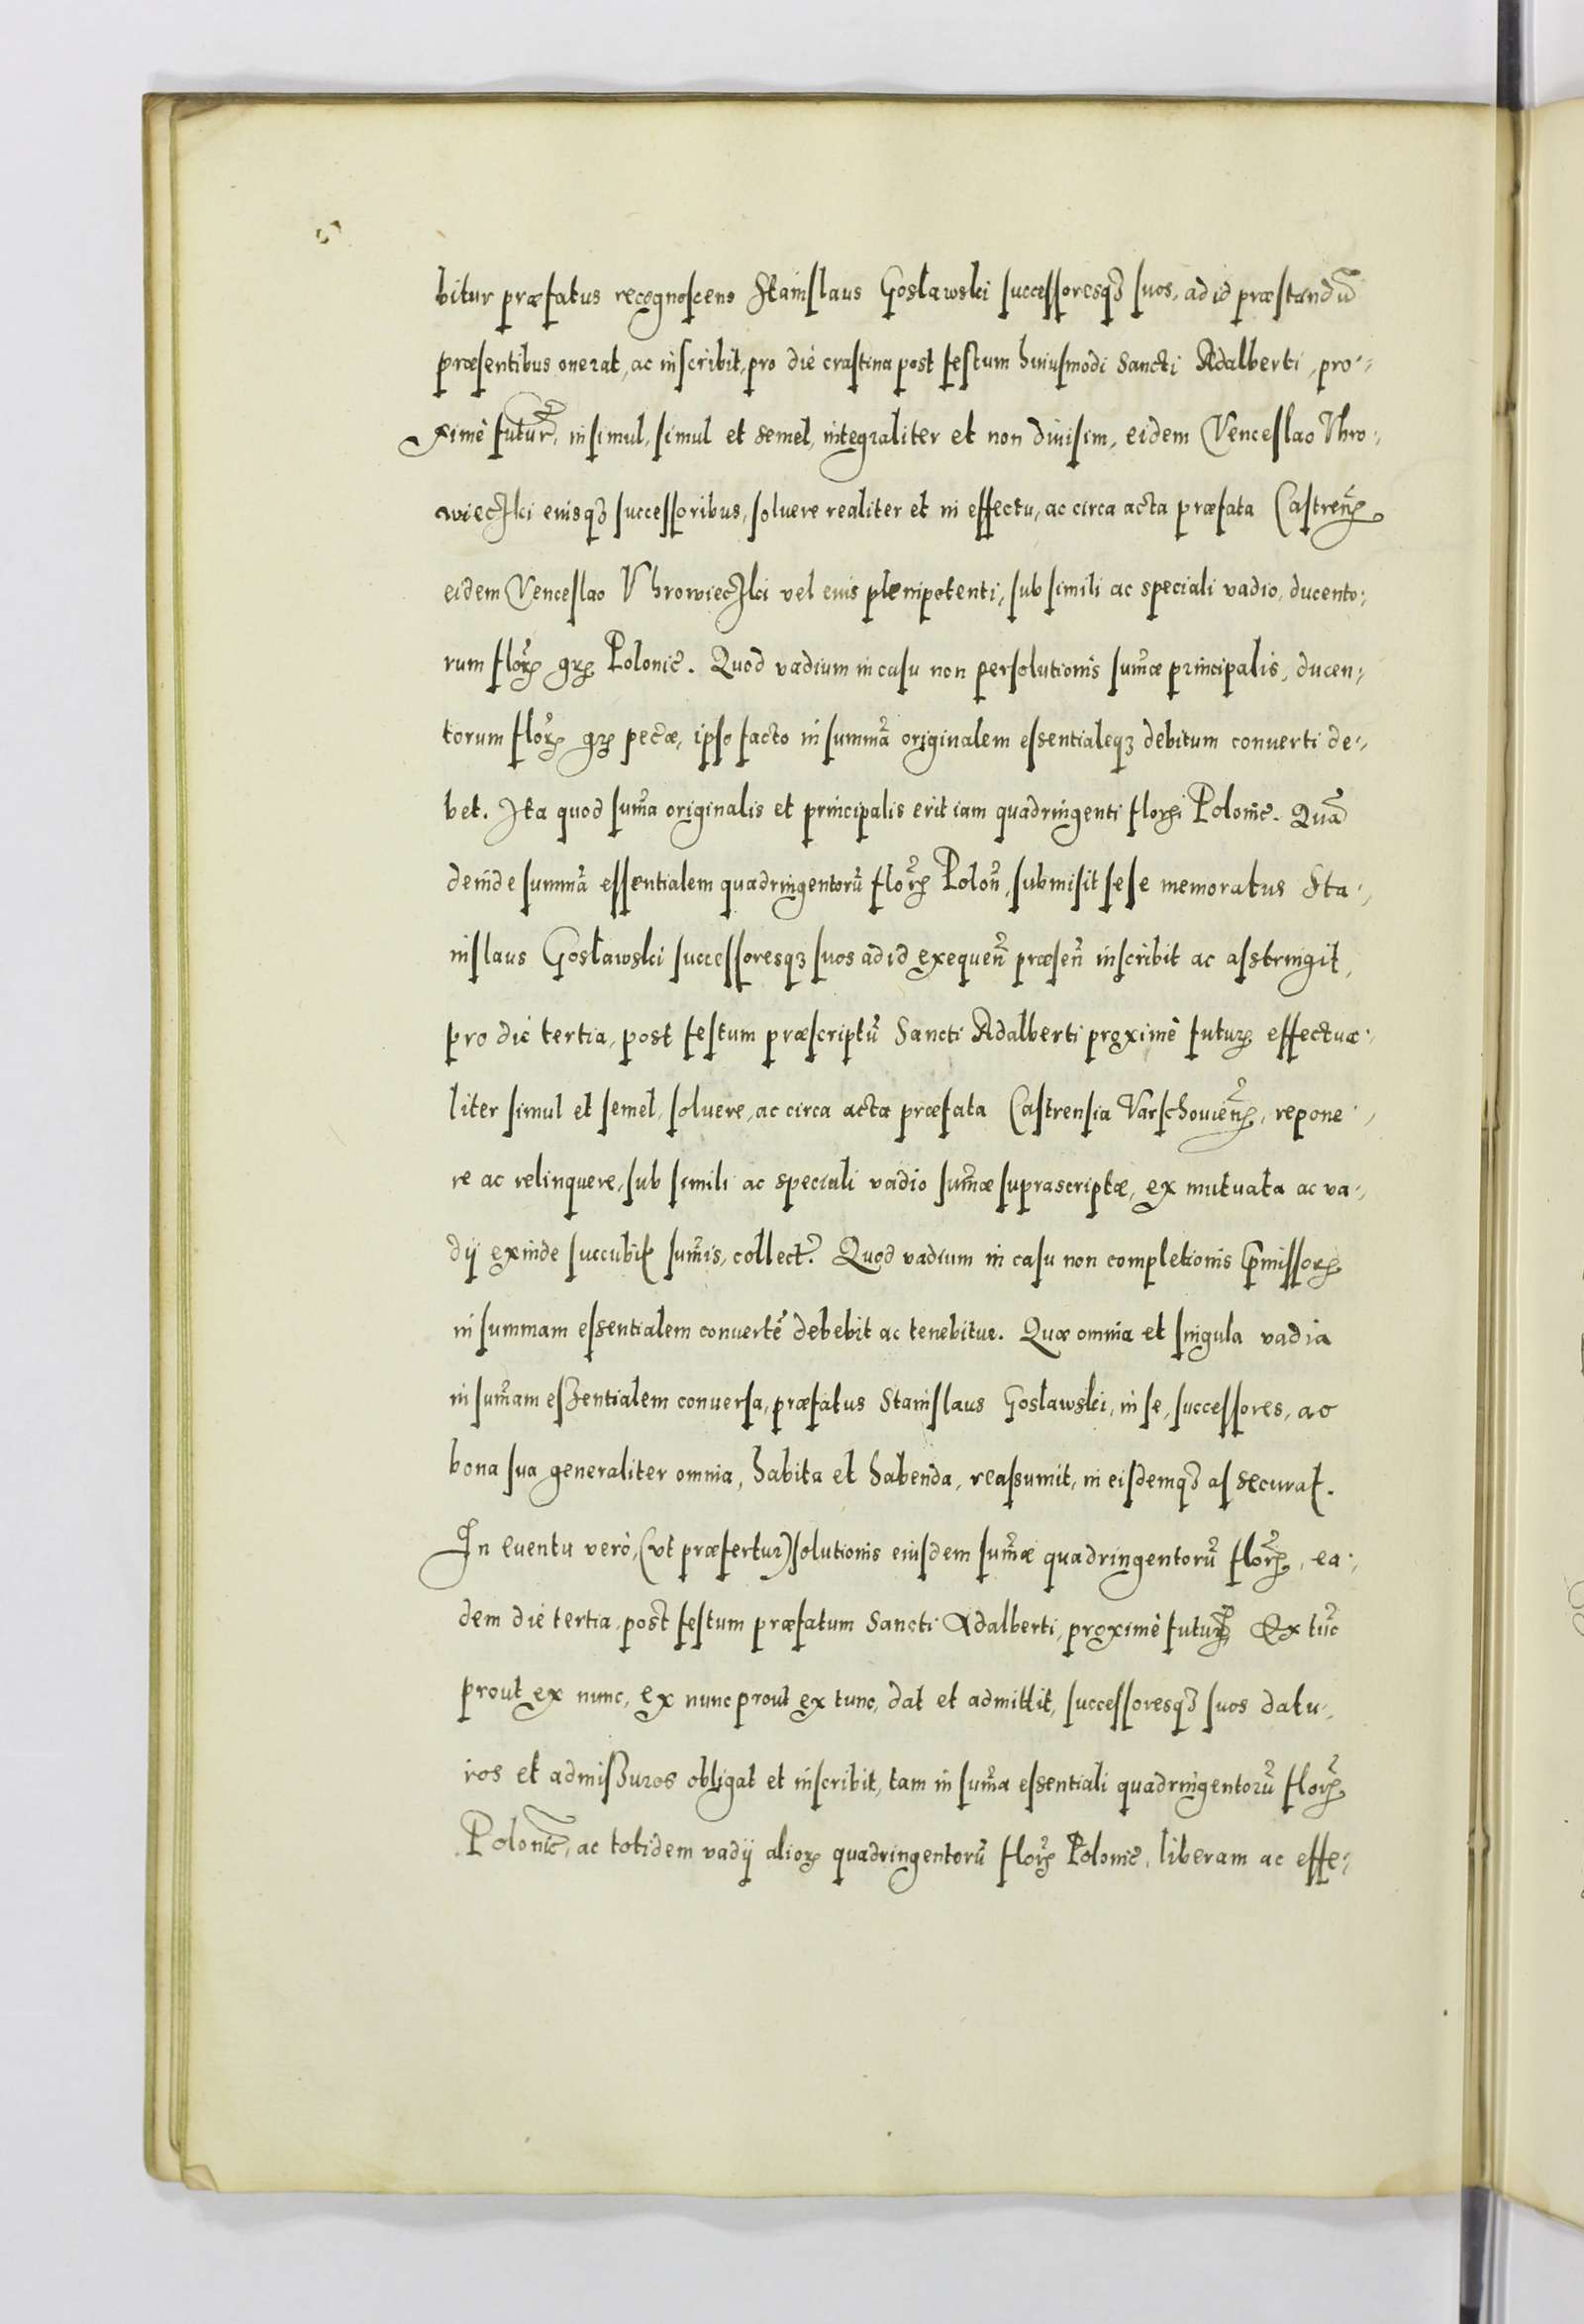 bitur præfatus recognoscens Stanislaus Gosławski successoresqꝫ suos, ad id præstandũ
præsentibus onerat, ac inscribit, pro die crastina post festum huiusmodi Sancti Adalberti, pro-
ximè futurꝝ, insimul, simul et semel, integraliter et non diuisim, eidem Venceslao Vhro-
wieczki eiusqꝫ successoribus, soluere realiter et in effectu, ac circa acta præfata Castrenꝝ
eidem Venceslao Vhrowieczki vel eius plenipotenti, sub simili ac speciali vadio, ducento-
rum florꝝ grꝝ Polonic̃. Quod vadium in casu non persolutionis sum̃æ principalis, ducen-
torum florꝝ grꝝ pec̃æ, ipso facto in summã originalem essentialeqꝫ debitum conuerti de-
bet. Ita quod sum̃a originalis et principalis erit iam quadringenti florꝝi Polonic̃. Quã
deinde summã essentialem quadringentorũ florꝝ Poloñ, submisit sese memoratus Sta-
nislaus Gosławski successoresqꝫ suos ad id exequeñ præseñ inscribit ac astringit,
pro die tertia, post festum præscriptũ Sancti Adalberti proximè futurꝝ effectua-
liter simul et semel, soluere, ac circa acta præfata Castrensia Varschouieñꝝ, repone-
re ac relinquere, sub simili ac speciali vadio sum̃æ suprascriptæ, ex mutuata ac va-
dij exinde succubit̃ sum̃is, collect̃. Quod vadium in casu non completionis p̃missorꝝ
in summam essentialem conuertẽ debebit ac tenebitur. Quæ omnia et singula vadia
in sum̃am essentialem conuersa, præfatus Stanislaus Gosławski, in se, successores, ac
bona sua generaliter omnia, habita et habenda, reassumit, in eisdemqꝫ assecurat.
In euentu verò, (vt præfertur) solutionis eiusdem sum̃æ quadringentorũ florꝝ, ea-
dem die tertia, post festum præfatum Sancti Adalberti, proximè futurꝝ Ex tũc
prout ex nunc, ex nunc prout ex tunc, dat et admittit, successoresqꝫ suos datu-
ros et admissuros obligat et inscribit, tam in sum̃a essentiali quadringentorũ florꝝ
Polonic̃, ac totidem vadij aliorꝝ quadringentorũ florꝝ Polonic̃, liberam ac effe-